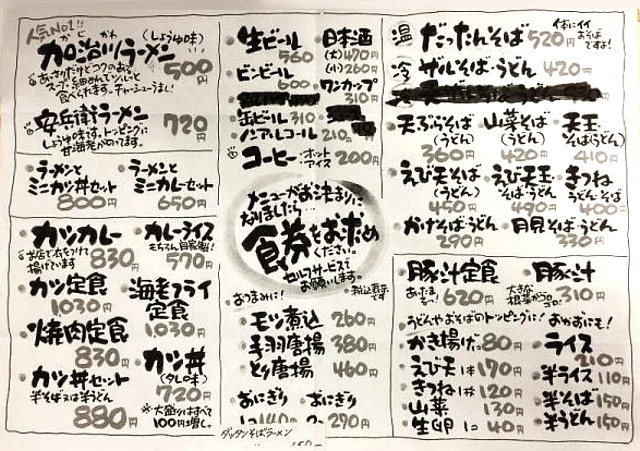 人気NO.1!
かじがわ
加治川ラーメン
(しょうゆ味)
500円
あっさりだけどコクのある
スープ・細めんでツルッと
食べられます。チャーシューうまく!
安兵衛ラーメン
720円
しょうゆ味です。トッピングに
甘海老がのってます。
・ラーメンと
ミニカツ丼セット
800円
・ラーメンと
ミニカレーセット
650円
・カツカレー
お店で衣をつけて
揚げています
830円
・カレーライス
もちろん自家製!
570円
・カツ定食
1030円
・海老フライ
定食
1030円
・焼肉定食
830円
・カツ丼
(タレの味)
720円
・カツ丼セット
半そば又は半うどん
880円
※大盛りはすべて
100円増し。
・生ビール
560円
・日本酒
(大)470円
(小)260円
・ビンビール
600円
・ワンカップ
310円
・缶ビール310円
・ノンアルコール 210円
・コーヒー・ホット
アイス 200円
メニューがお決まりに
なりましたら
食券をお求め
ください。
セルフサービスで
お願いします。
・税込表示
です
おつまみに!
・モツ煮込 260円
・手羽唐揚 380円
・とり唐揚 460円
・おにぎり
140円
・おにぎり
270円
ダッタンそばラーメン
温
だったんそば 520円
体にイイ
おそば
ですよ!
冷
ザルそば・うどん 420円
・天ぷらそば
(うどん)
360円
・山菜そば
(うどん)
420円
・天玉
そば(うどん)
410円
・えび天そば
(うどん)
450円
・えび天玉
そば・うどん
490円
・きつね
うどん・そば
400円
・かけそば・うどん
290円
・月見そば・うどん
330円
・豚汁定食
あったま
るべ~!
620円
・豚汁
大きな
根菜がゴロ
ゴロ!
310円
・うどんやおそばのトッピングに!
おかずにも!
・かき揚げ1コ80円
・えび天1本170円
・きつね1枚120円
・山菜 130円
・生卵1コ40円
・ライス
210円
・半ライス110円
・半そば150円
・半うどん150円